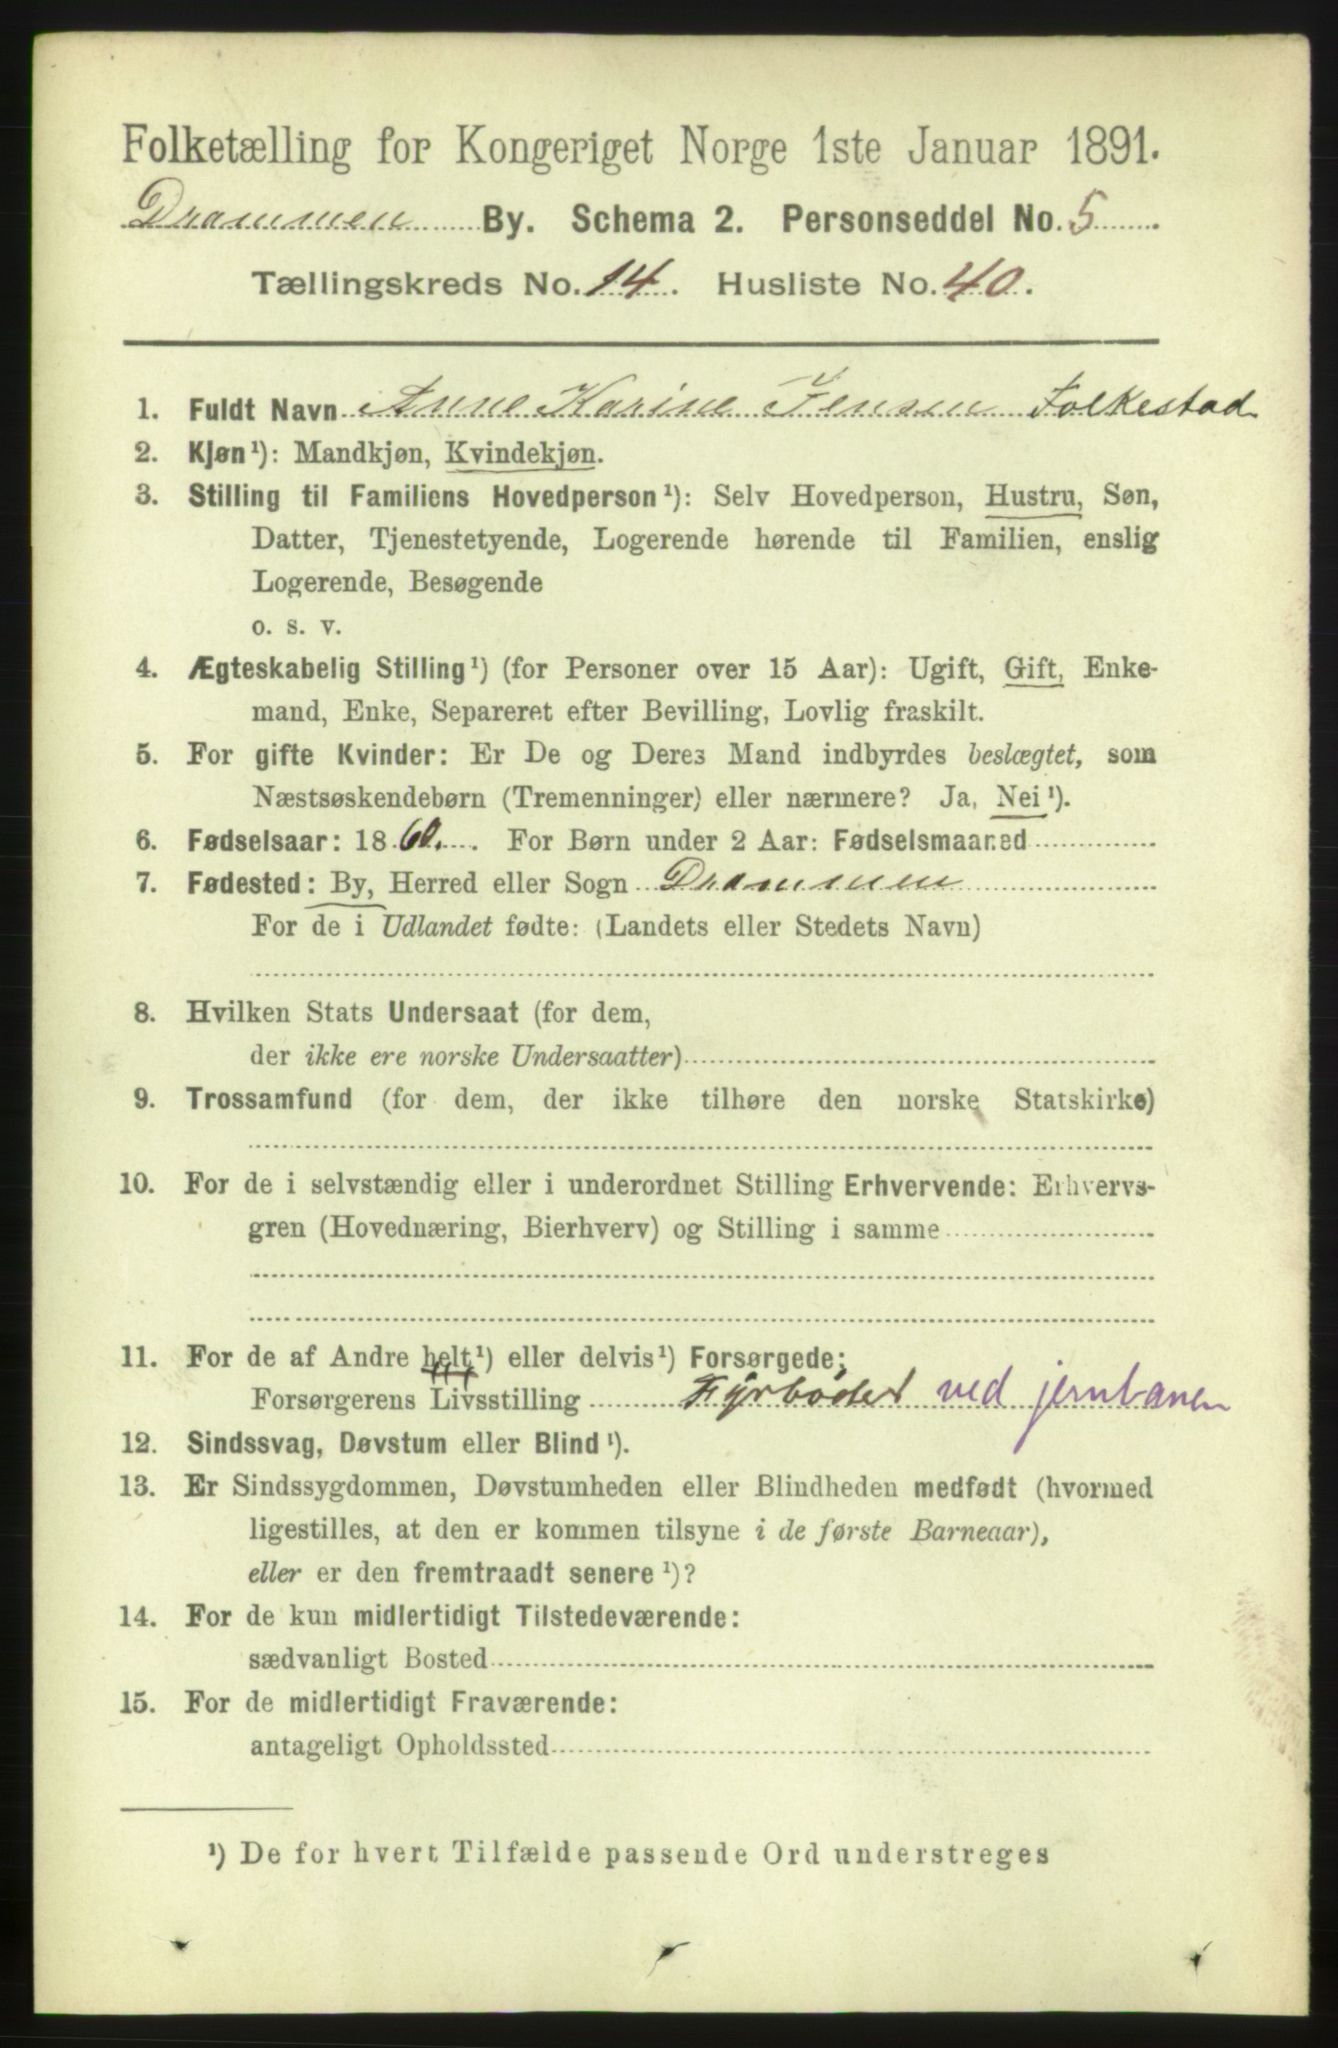 Folketælling for Kongeriget Norge 1ste Januar 1891.
Drammen By. Schema 2. Personseddel No. 5
Tællingskreds No. 14. Husliste No. 40.
1. Fuldt Navn Anne Karine Jensen Folkestad
2. Kjøn¹): Mandkjøn, Kvindekjøn.
3. Stilling til Familiens Hovedperson¹): Selv Hovedperson, Hustru, Søn,
Datter, Tjenestetyende, Logerende hørende til Familien, enslig
Logerende, Besøgende
o. s. v.
4. Ægteskabelig Stilling¹) (for Personer over 15 Aar): Ugift, Gift, Enke-
mand, Enke, Separeret efter Bevilling, Lovlig fraskilt.
5. For gifte Kvinder: Er De og Deres Mand indbyrdes beslægtet, som
Næstsøskendebørn (Tremenninger) eller nærmere? Ja, Nei¹).
6. Fødselsaar: 1860. For Børn under 2 Aar: Fødselsmaaned
7. Fødested: By, Herred eller Sogn Drammen
For de i Udlandet fødte: (Landets eller Stedets Navn)
8. Hvilken Stats Undersaat (for dem,
der ikke ere norske Undersaatter)
9. Trossamfund (for dem, der ikke tilhøre den norske Statskirke)
10. For de i selvstændig eller i underordnet Stilling Erhvervende: Erhvervs-
gren (Hovednæring, Bierhverv) og Stilling i samme
11. For de af Andre helt¹) eller delvis¹) Forsørgede:
Forsørgerens Livsstilling Fyrbøder ved jernbanen
12. Sindssvag, Døvstum eller Blind¹).
13. Er Sindssygdommen, Døvstumheden eller Blindheden medfødt (hvormed
ligestilles, at den er kommen tilsyne i de første Barneaar),
eller er den fremtraadt senere¹)?
14. For de kun midlertidigt Tilstedeværende:
sædvanligt Bosted
15. For de midlertidigt Fraværende:
antageligt Opholdssted
¹) De for hvert Tilfælde passende Ord understreges